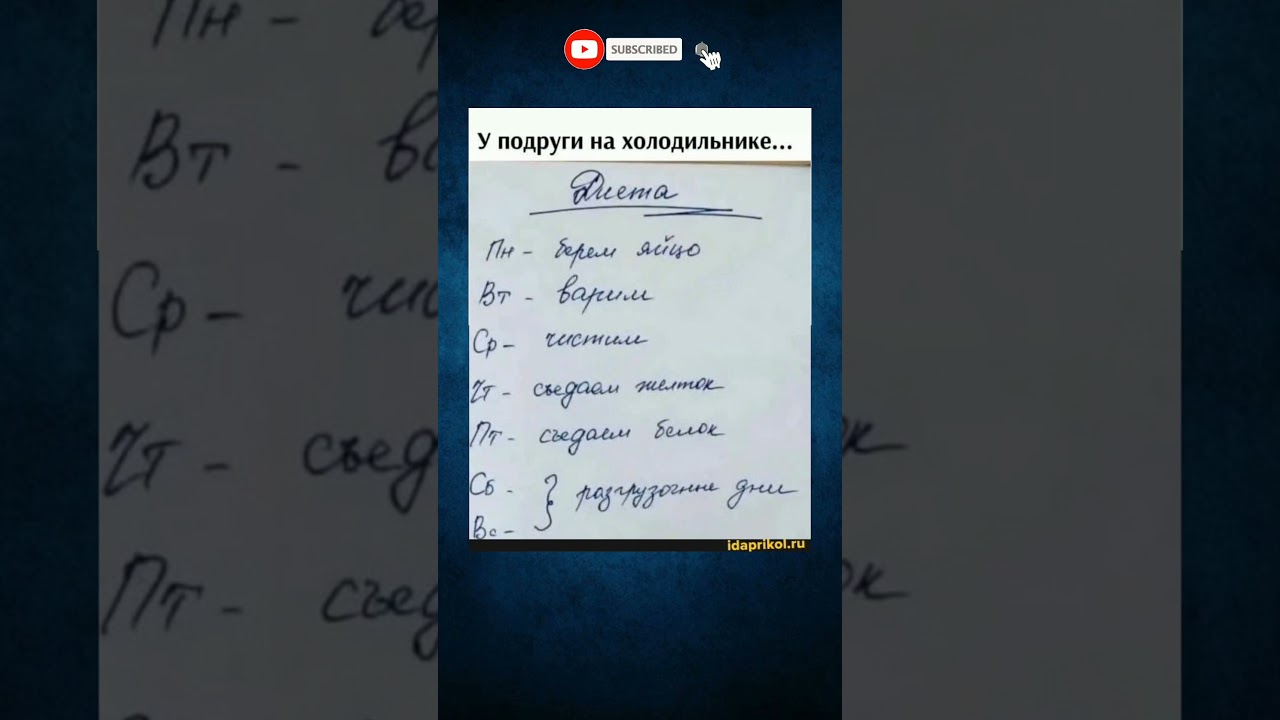 SUBSCRIBED
У подруги на холодильнике...
Диета
Пн - берем яйцо
Вт - варим
Ср - чистим
Чт - съедаем желток
Пт - съедаем белок
Сб -
Вс - } разгрузочные дни
idaprikol.ru